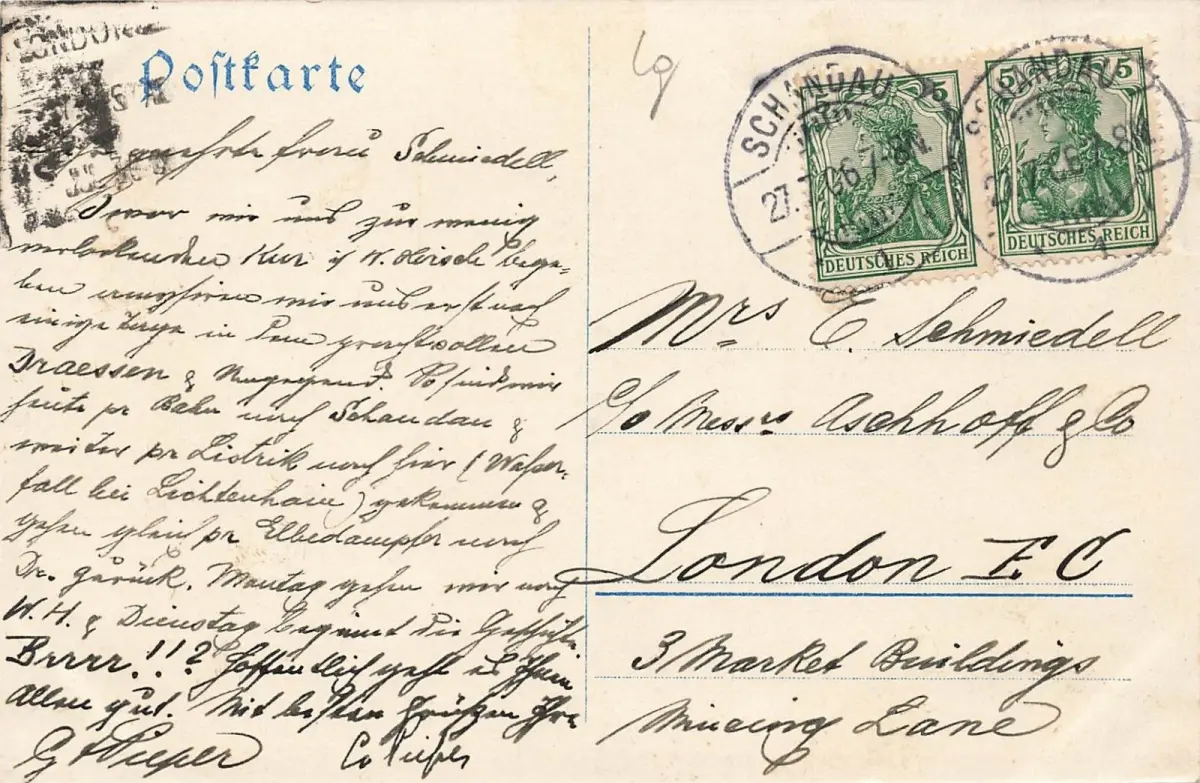 Postkarte
LONDON
geehrte Frau Schmiedell,
wir uns zur wenig
verlockenden Kur W. Hirsch bege-
ben wir uns erst noch
einige Tage in dem prachtvollen
Draessen & Umgegend. So sind wir
heute pr Bahn nach Schandau &
weiter pr nach hier (Wasser-
fall bei Lichtenhain) gekommen &
gehen gleich pr Elbedampfer nach
Dr. zurück. Montag gehen wir nach
W. H. & Dienstag beginnt die Geschichte
Brrrr!!? Hoffentlich geht es Ihnen
Allen gut. Mit besten Grüßen Ihre
G Pieper Co Pieper
SCHANDAU
27. 06 7-8N
SCHANDAU
27.7.06 7-8N
5 5
DEUTSCHES REICH
5 5
DEUTSCHES REICH
Mrs E. Schmiedell
c/o Messrs Aschhoff & Co
London E C
3 Market Buildings
Mincing Lane